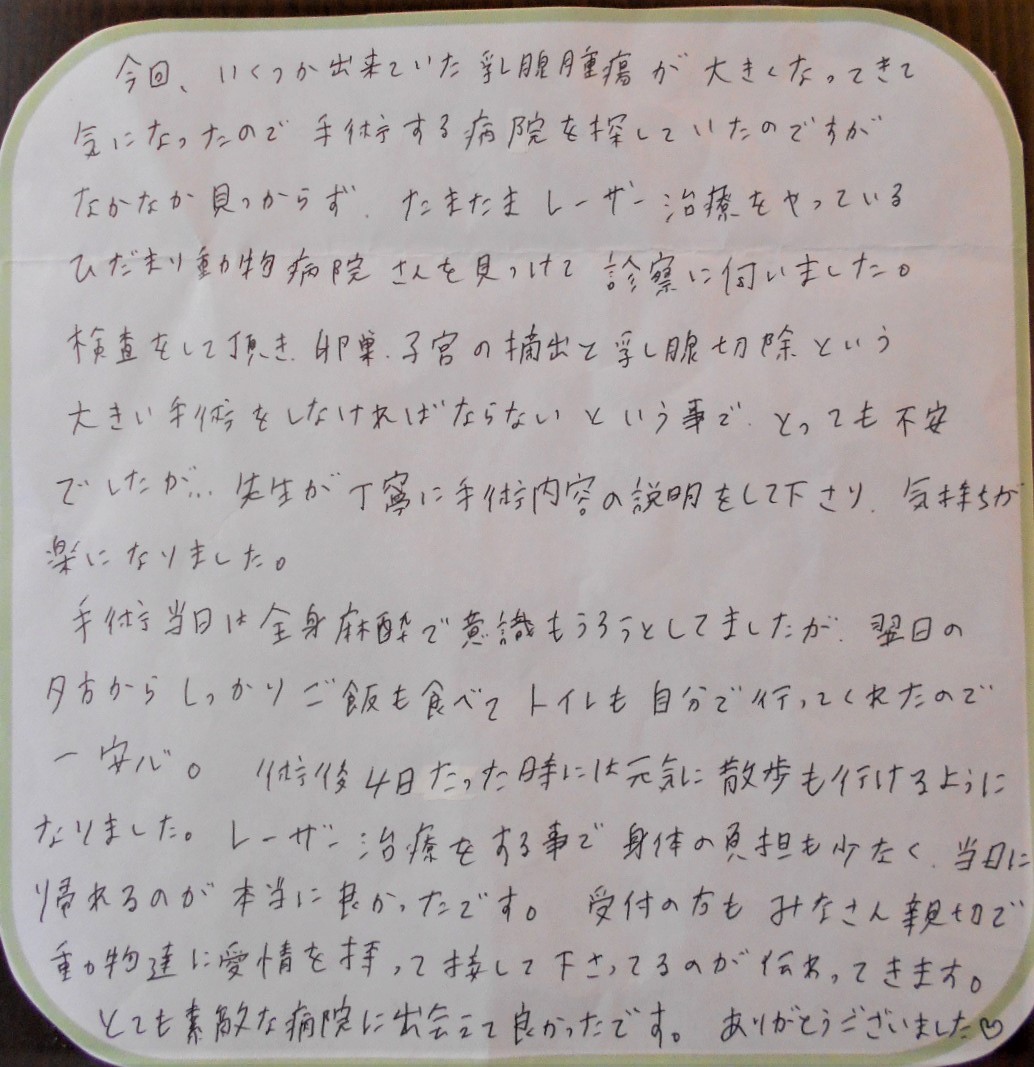 今回、いくつか出来ていた乳腺腫瘍が大きくなってきて
気になったので手術する病院を探していたのですが
なかなか見つからず、たまたまレーザー治療をやっている
ひだまり動物病院さんを見つけて診察に伺いました。
検査をして頂き、卵巣、子宮の摘出と乳腺切除という
大きい手術をしなければならないという事で、とっても不安
でしたが... 先生が丁寧に手術内容の説明をして下さり、気持ちが
楽になりました。
手術当日は全身麻酔で意識もうろうとしてましたが、翌日の
夕方からしっかりご飯も食べてトイレも自分で行ってくれたので
一安心。 術後4日たった時には元気に散歩も行けるように
なりました。レーザー治療をする事で身体の負担も少なく、当日に
帰れるのが本当に良かったです。 受付の方もみなさん親切で
動物達に愛情を持って接して下さってるのが伝わってきます。
とても素敵な病院に出会えて良かったです。 ありがとうございました♡